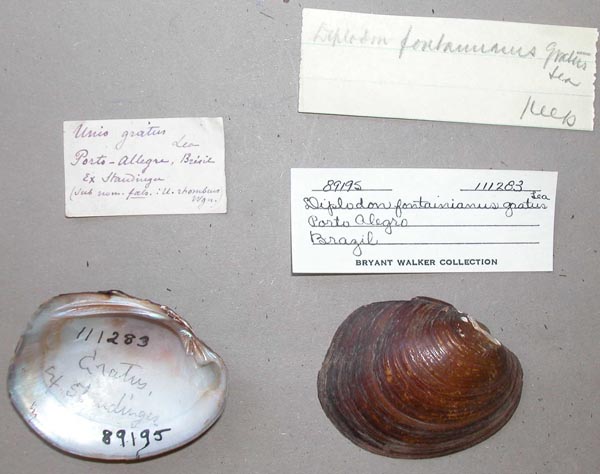 Diplodon fontainianus gratus
Lea
Keep
Unio gratus
Lea
Porto-Allegre, Brésil
Ex Staudinger
(sub nom. fals.: U. rhombeus
Wgn.
89195 111283
Diplodon fontainianus gratus Lea
Porto Alegro
Brazil
BRYANT WALKER COLLECTION
111283
Gratus,
Ex Staudinger
89195